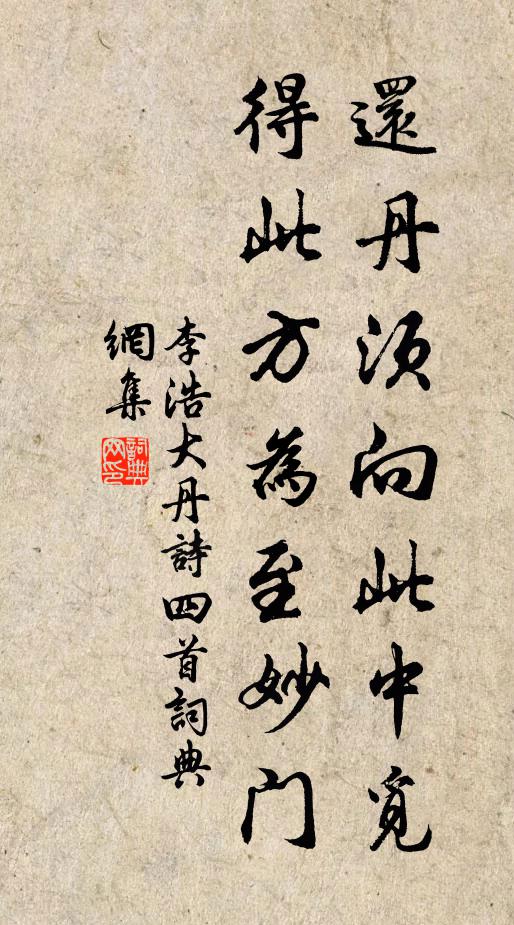 還丹須向此中覓
得此方為至妙門
李浩大丹詩四首詞典
網集
詞典
网印